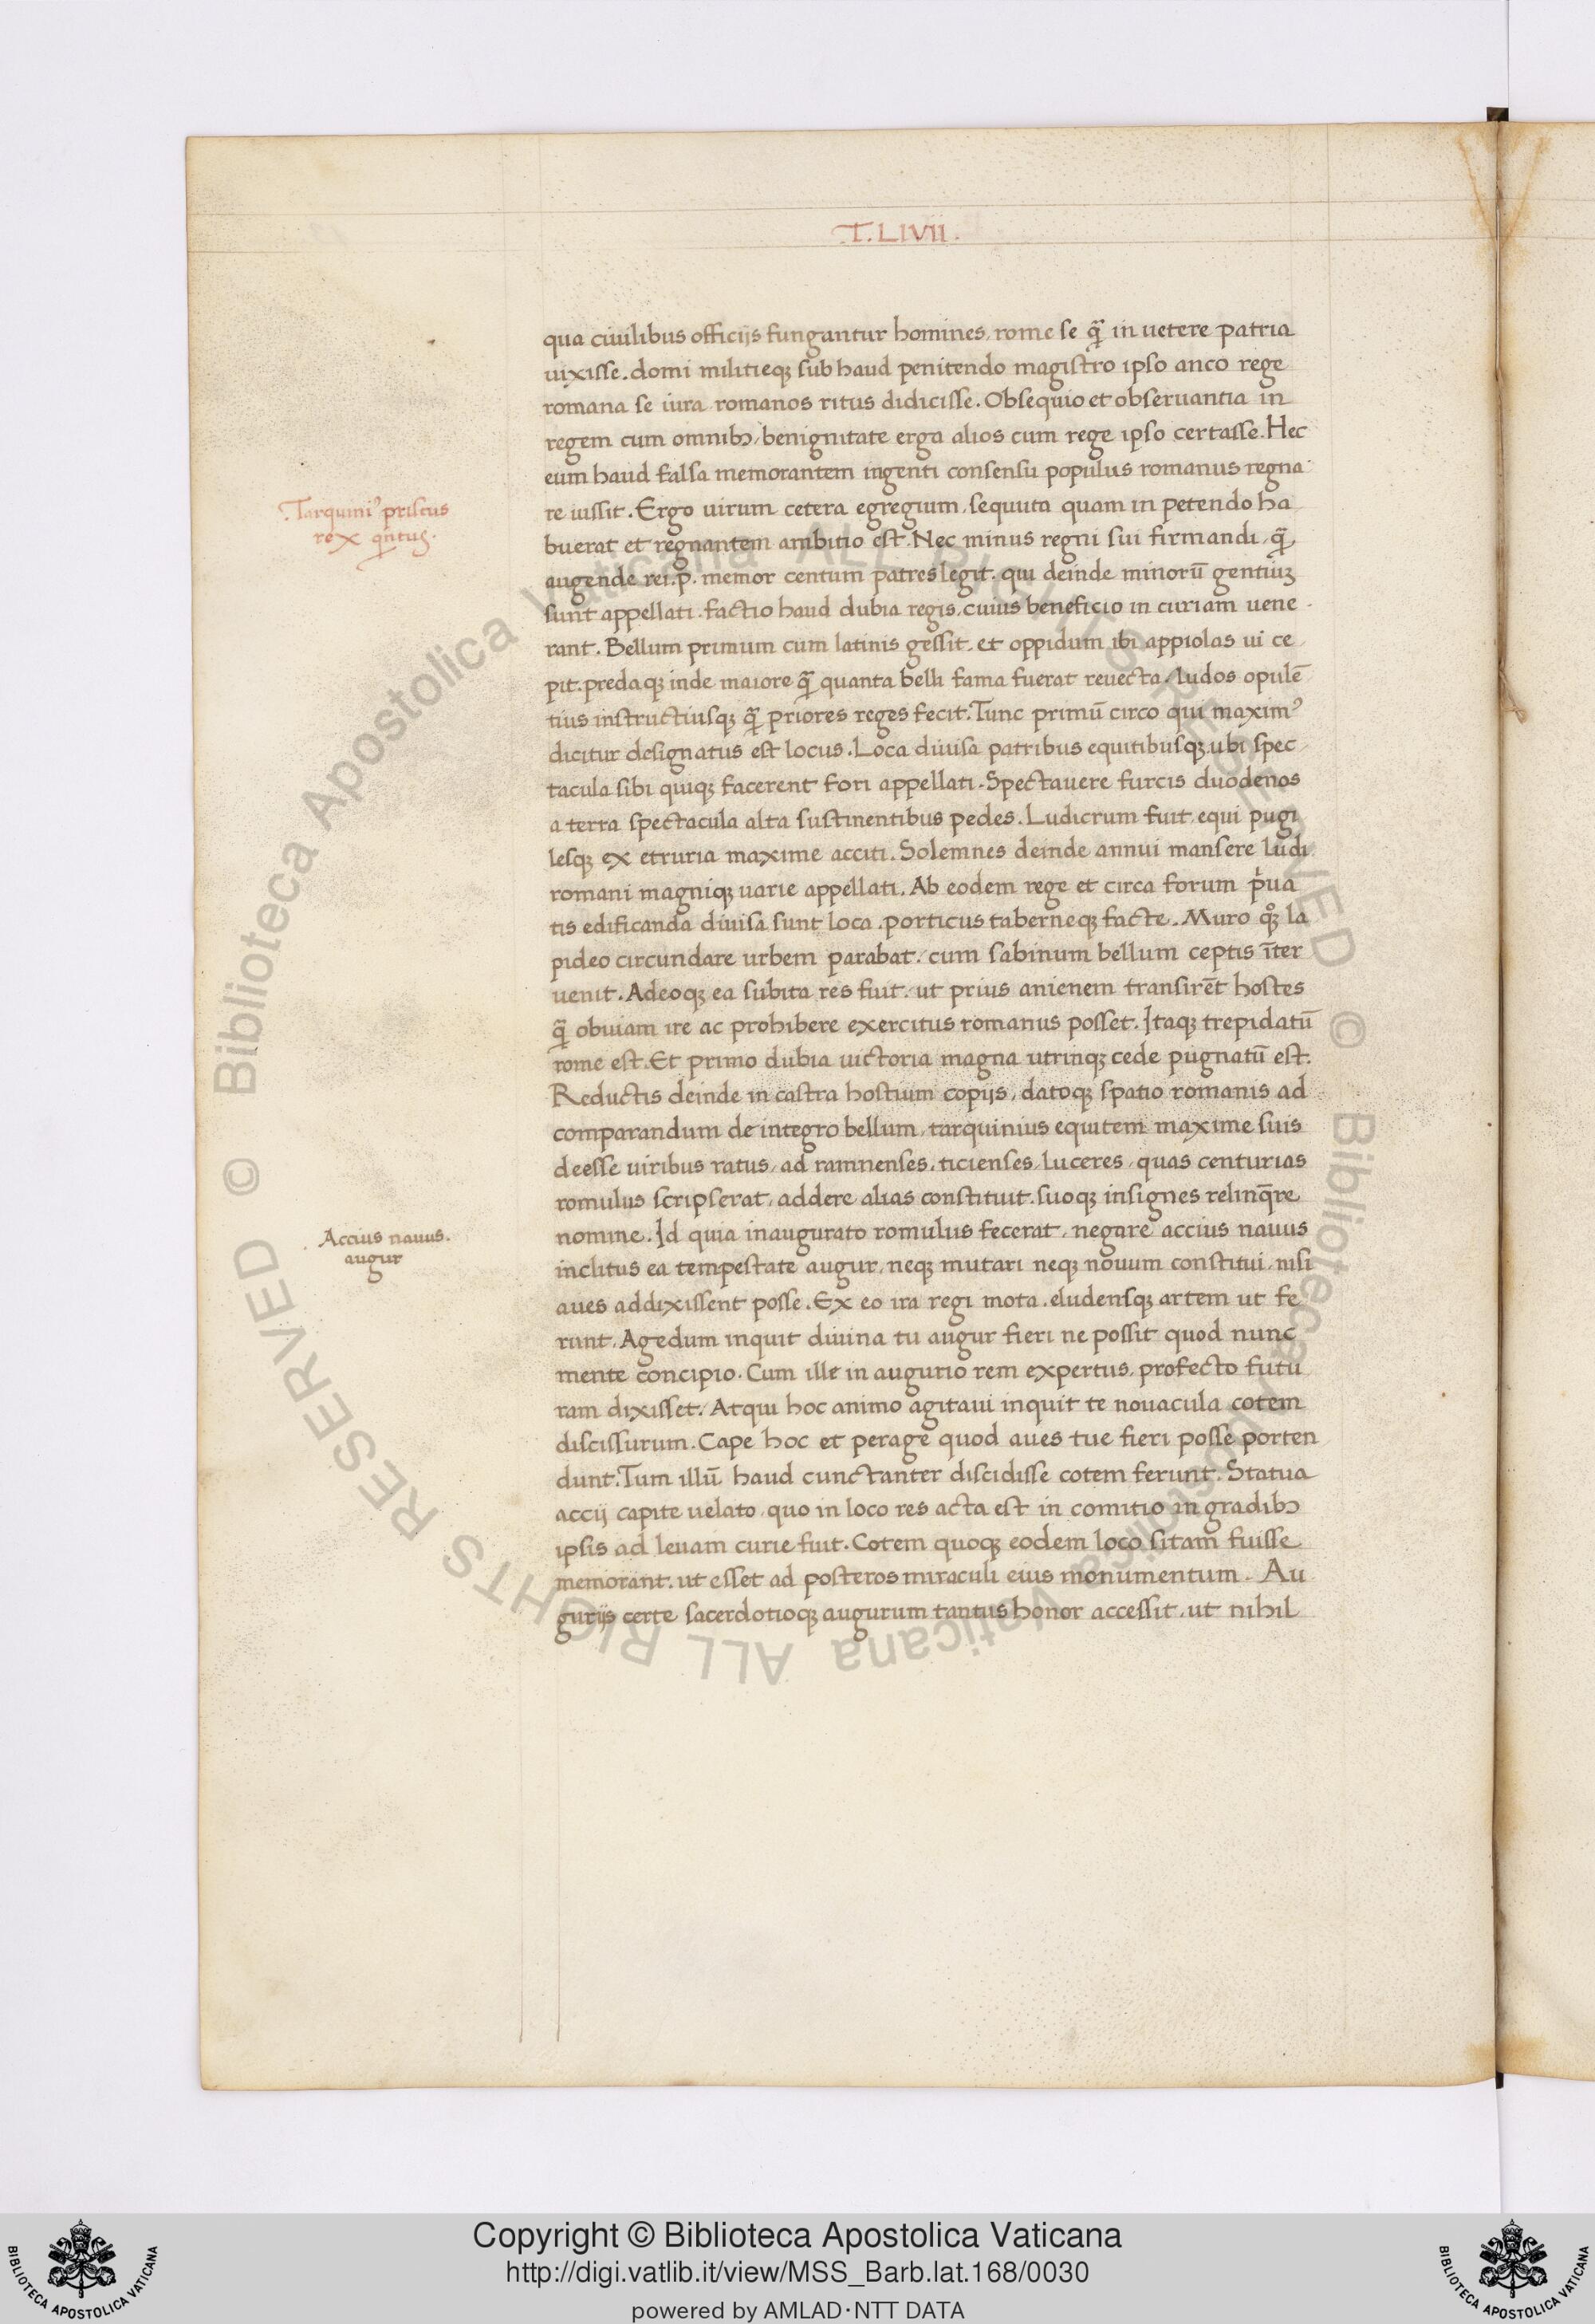 T. LIVII.
qua ciuilibus officijs fungantur homines, rome se q̃ in uetere patria
uixisse. domi militieqȝ sub haud penitendo magistro ipso anco rege
romana se iura romanos ritus didicisse. Obsequio et obseruantia in
regem cum omnibꝫ, benignitate erga alios cum rege ipso certasse. Hec
eum haud falsa memorantem ingenti consensu populus romanus regna
re iussit. Ergo uirum cetera egregium, sequuta quam in petendo ha
buerat et regnantem ambitio est. Nec minus regni sui firmandi, q̃
augende rei .p. memor centum patres legit. qui deinde minorū gentiuȝ
sunt appellati. factio haud dubia regis, cuius beneficio in curiam uene
rant. Bellum primum cum latinis gessit, et oppidum ibi appiolas ui ce
pit. predaqȝ inde maiore q̃ quanta belli fama fuerat reuecta. ludos opulē
tius instructiusqȝ q̃ priores reges fecit. Tunc primū circo qui maximꝰ
dicitur designatus est locus. Loca diuisa patribus equitibusqȝ ubi spec
tacula sibi quiqȝ facerent fori appellati. Spectauere furcis duodenos
a terra spectacula alta sustinentibus pedes. Ludicrum fuit, equi pugi
lesqȝ ex etruria maxime acciti. Solemnes deinde annui mansere ludi
romani magniqȝ uarie appellati. Ab eodem rege et circa forum p̍ua
tis edificanda diuisa sunt loca. porticus taberneqȝ facte. Muro qͦȝ la
pideo circundare urbem parabat. cum sabinum bellum ceptis īter
uenit. Adeoqȝ ea subita res fuit. ut prius anienem transirēt hostes
q̃ obuiam ire ac prohibere exercitus romanus posset. Itaqȝ trepidatū
rome est. Et primo dubia uictoria magna utrinqȝ cede pugnatū est.
Reductis deinde in castra hostium copijs, datoqȝ spatio romanis ad
comparandum de integro bellum, tarquinius equitem maxime suis
deesse uiribus ratus, ad ramnenses, ticienses, luceres, quas centurias
romulus scripserat, addere alias constituit. suoqȝ insignes relinq̄re
nomine. Id quia inaugurato romulus fecerat, negare accius nauus
inclitus ea tempestate augur, neqȝ mutari neqȝ nouum constitui, nisi
aues addixissent posse. Ex eo ira regi mota. eludensqȝ artem ut fe
runt. Agedum inquit diuina tu augur fieri ne possit quod nunc
mente concipio. Cum ille in augurio rem expertus, profecto futu
ram dixisset. Atqui hoc animo agitaui inquit te nouacula cotem
discissurum. Cape hoc et perage quod aues tue fieri posse porten
dunt. Tum illū haud cunctanter discidisse cotem ferunt. Statua
accij capite uelato, quo in loco res acta est in comitio in gradibꝫ
ipsis ad leuam curie fuit. Cotem quoqȝ eodem loco sitam fuisse
memorant. ut esset ad posteros miraculi eius monumentum. Au
gurijs certe sacerdotioqȝ augurum tantus honor accessit, ut nihil
Tarquiniꝰ priscus
rex q̍ntus.
Accius nauus.
augur
© Biblioteca Apostolica Vaticana ALL RIGHTS RESERVED © Biblioteca Apostolica Vaticana ALL RIGHTS RESERVED
Copyright © Biblioteca Apostolica Vaticana
http://digi.vatlib.it/view/MSS_Barb.lat.168/0030
powered by AMLAD·NTT DATA
BIBLIOTECA APOSTOLICA VATICANA
BIBLIOTECA APOSTOLICA VATICANA